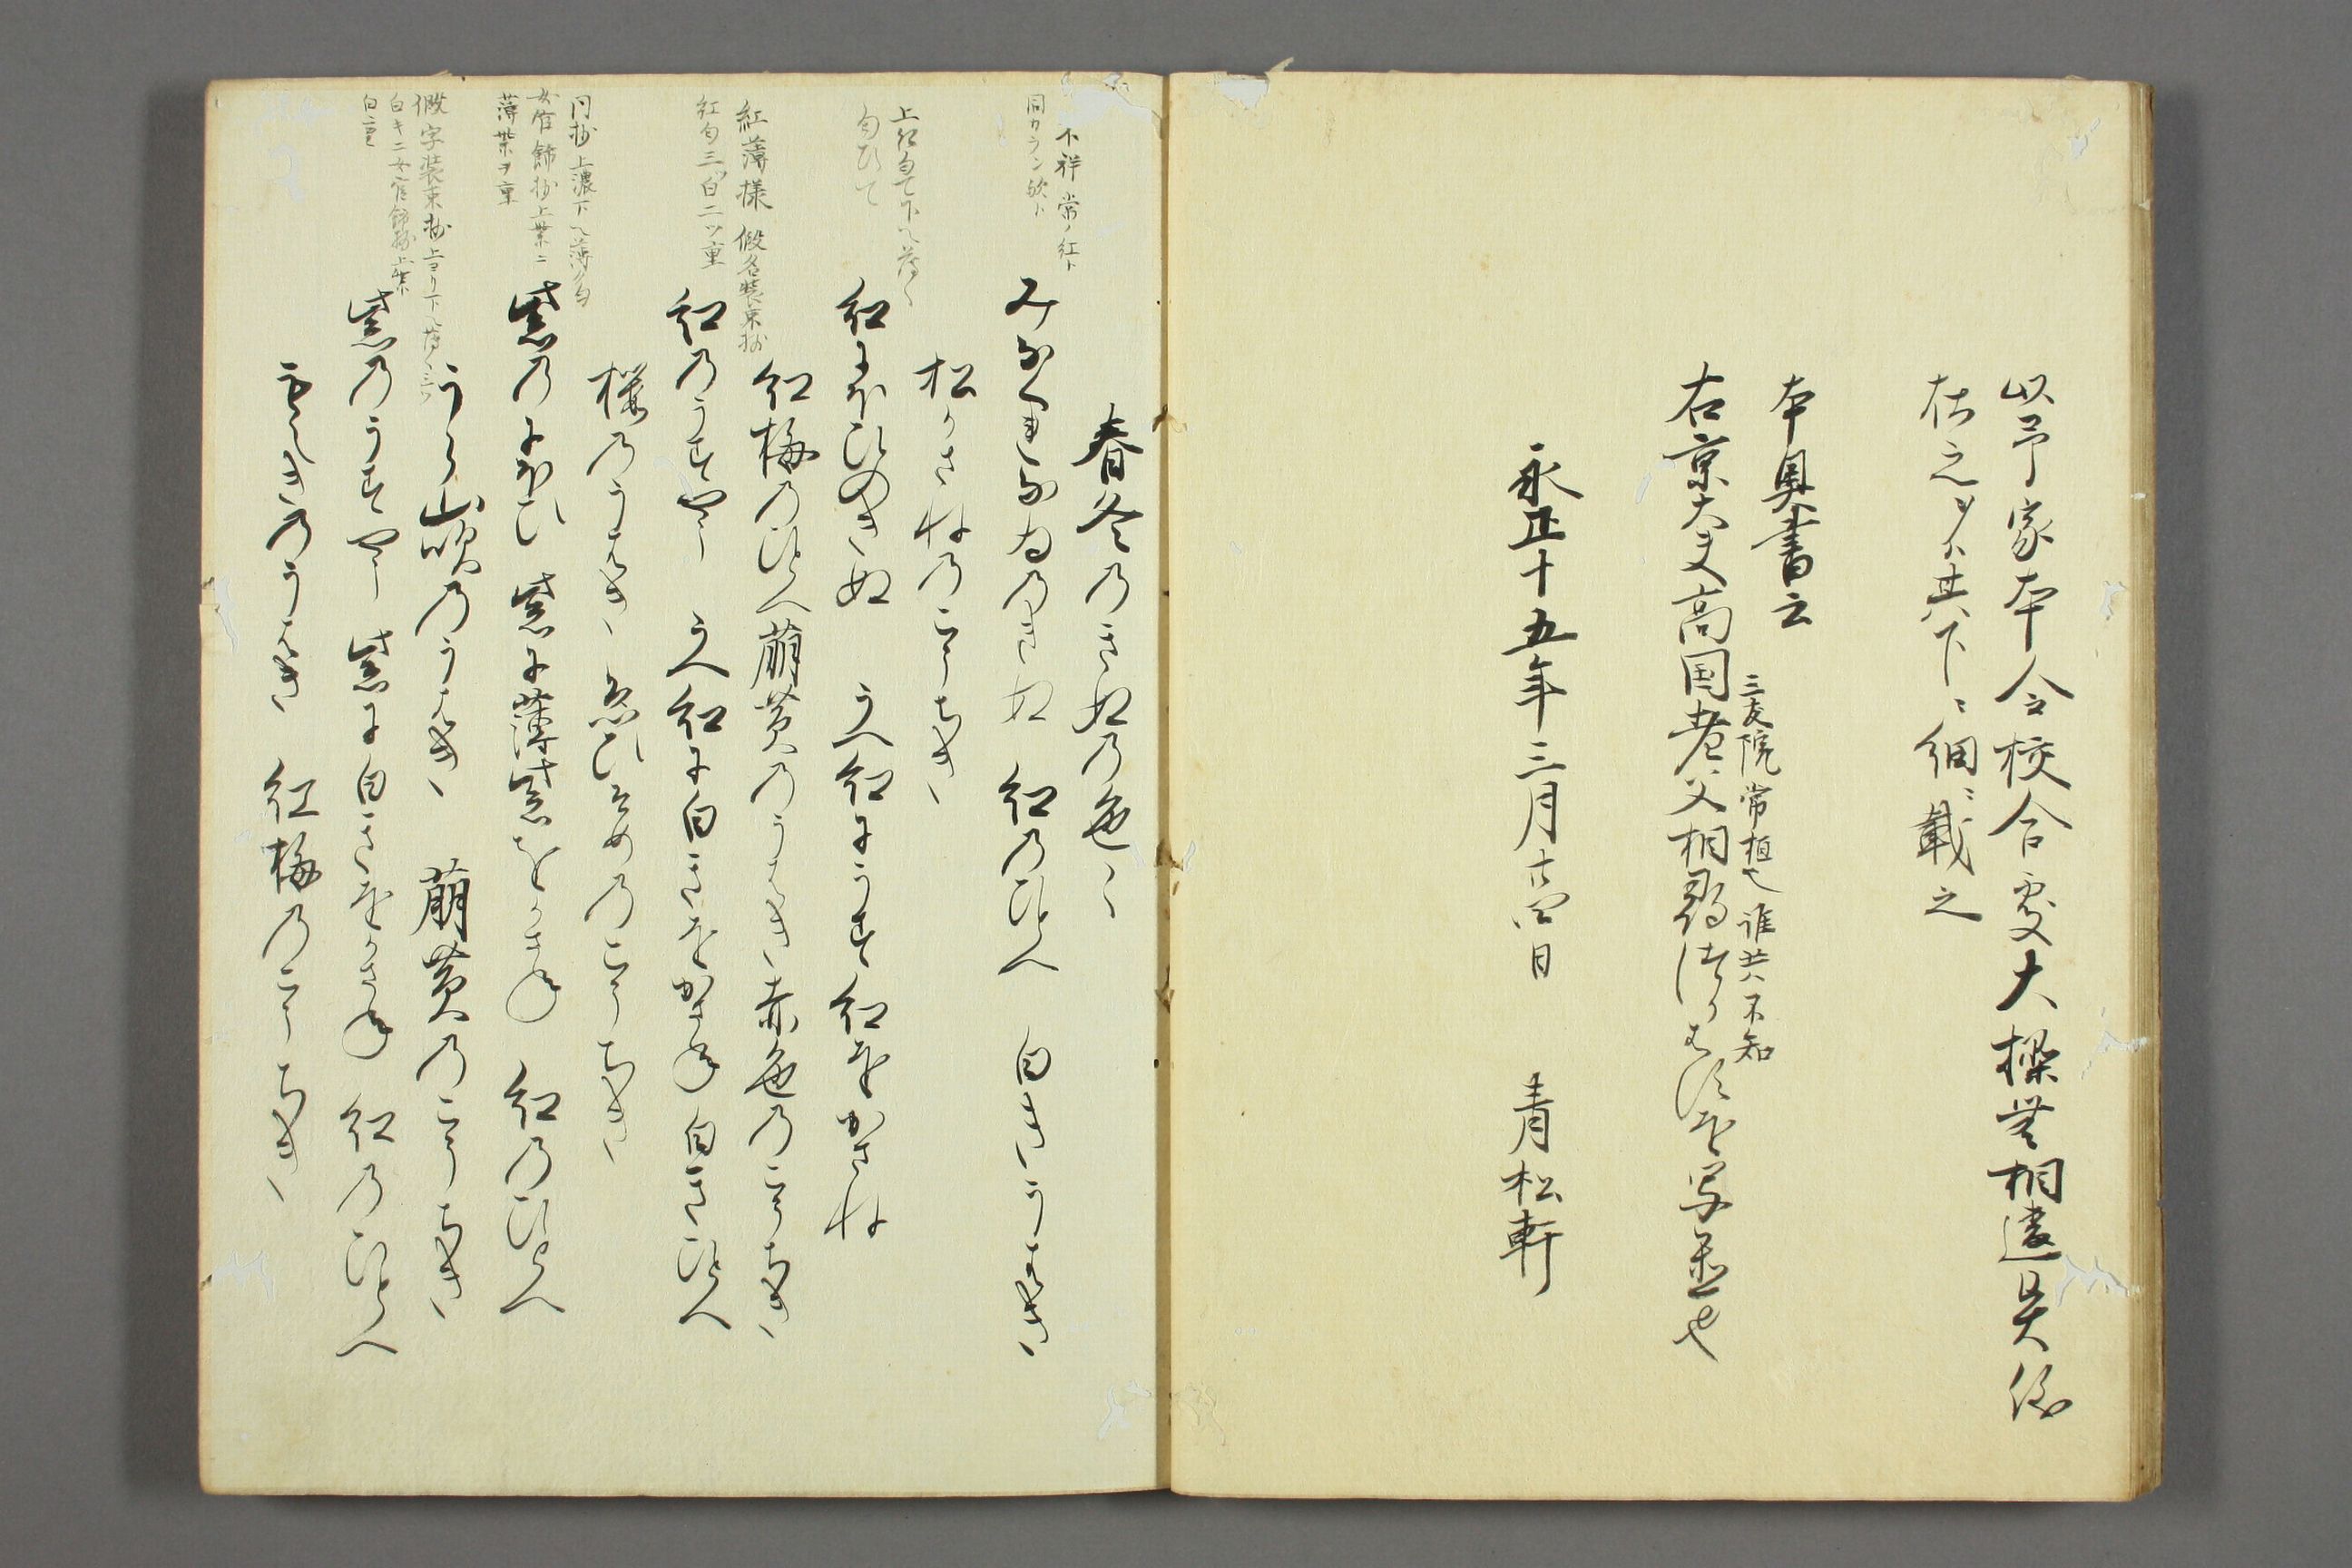 以予家本令校合處大槩無相違是依
在之少々其下ニ細ニ載之
本奥書云
三友院常植也誰共不知
右京大夫高国老父相尋
写置也
永正十五年三月廿四日 青松軒
春冬乃きぬ乃色〻
不祥常ノ紅ト
同カラン歟ト
みなくれなゐ乃きぬ 紅乃ひとへ 白きうはき
松かさね乃こうちき
上紅匂て下へ薄く
匂ひて
紅にほひのきぬ うへ紅にうす紅をかさね
紅梅乃ひとへ萠黄乃うはき赤色乃こうちき
紅薄様 假名装束抄
紅匂三ツ白二ツ重
紅乃うすやう うへ紅に白きをかさぬ 白きひとへ
桜乃うはき 乃こうちき
同抄上濃下へ薄匂
女官餝抄上紫ニ
薄紫ヲ重
紫乃にほひ 紫に薄紫をかさぬ 紅乃ひとへ
うら山吹乃うはき 萠黄乃こうちき
假字装束抄上ヨリ下へ薄ク三ツ
白キ二女官餝抄上紫
白重
紫乃うすやう 紫に白きをかさぬ 紅乃ひとへ
もえき乃うはき 紅梅乃こうちき